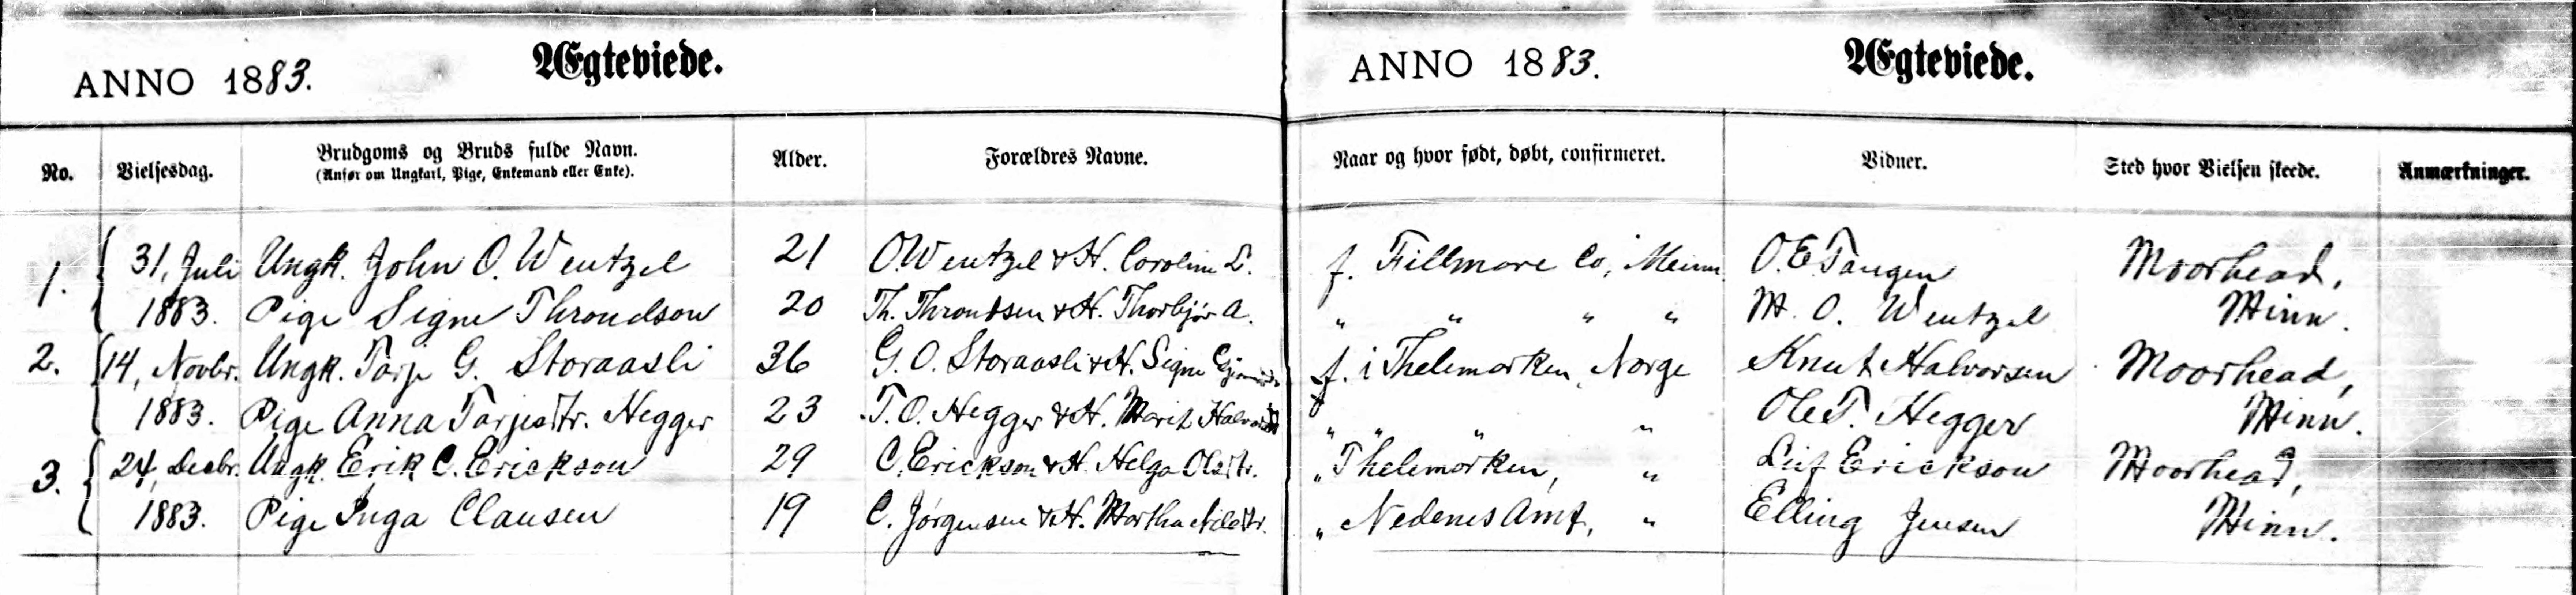 ANNO 1883. Ægteviede. ANNO 1883. Ægteviede.
No. Vielsesdag. Brudgoms og Bruds fulde Navn. Alder. Forældres Navne. Naar og hvor født, døbt, confirmeret. Vidner. Sted hvor Vielsen skeede. Anmærkninger.
(Anfør om Ungkarl, Pige, Enkemand eller Enke).
1. 31, Juli Ungk. John O. Wentzel 21 O. Wentzel & H. Caroline L. f. Fillmore Co, Minn. O. E. Tangen Moorhead,
1883. Pige Signe Throndson 20 Th. Throndsen & H. Thorbjør A. " " " " M. O. Wentzel Minn.
2. 14, Novbr. Ungk. Tarje G. Storaasli 36 G. O. Storaasli & H. Signe f. i Thelemarken, Norge Knut Halvorsen Moorhead,
1883. Pige Anna Tarjesdtr. Hegger 23 T. O. Hegger & H. Marit " " " " Ole T. Hegger Minn.
3. 24, Decbr. Ungk. Erik C. Erickson 29 C. Erickson & H. Helga Olsdtr. " Thelemarken, " Leif Erickson Moorhead,
1883. Pige Inga Clausen 19 C. Jørgensen & H. Martha Nilsdtr. " Nedenes Amt, " Elling Jensen Minn.